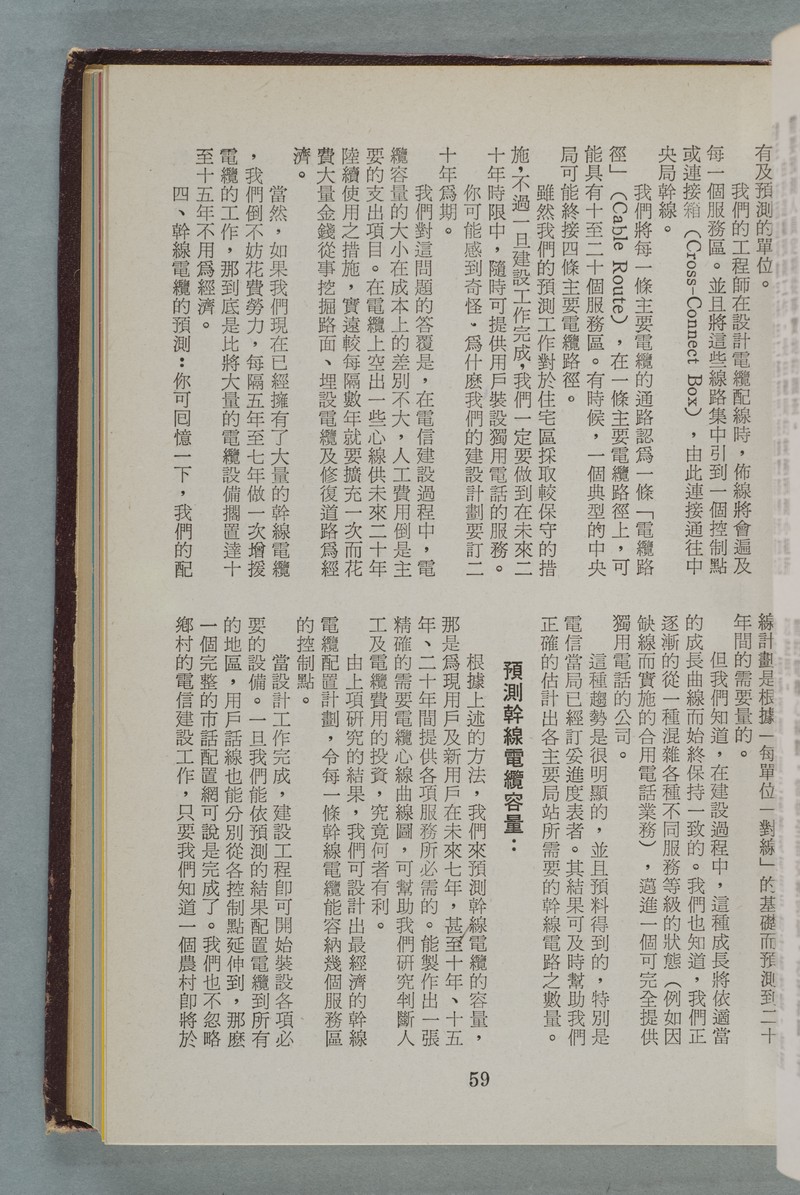 有及預測的單位。
我們的工程師在設計電纜配線時，佈線將會遍及
每一個服務區。並且將這些線路集中引到一個控制點
或連接箱（Cross-Connect Box），由此連接通往中
央局幹線。
我們將每一條主要電纜的通路認爲一條「電纜路
徑」（Cable Route），在一條主要電纜路徑上，可
能具有十至二十個服務區。有時候，一個典型的中央
局可能終接四條主要電纜路徑。
雖然我們的預測工作對於住宅區採取較保守的措
施，不過一旦建設工作完成，我們一定要做到在未來二
十年時限中，隨時可提供用戶裝設獨用電話的服務。
你可能感到奇怪，爲什麽我們的建設計劃要訂二
十年爲期。
我們對這問題的答覆是，在電信建設過程中，電
纜容量的大小在成本上的差別不大，人工費用倒是主
要的支出項目。在電纜上空出一些心線供未來二十年
陸續使用之措施，實遠較每隔數年就要擴充一次而花
費大量金錢從事挖掘路面、埋設電纜及修復道路爲經
濟。
當然，如果我們現在已經擁有了大量的幹線電纜
，我們倒不妨花費勞力，每隔五年至七年做一次增援
電纜的工作，那到底是比將大量的電纜設備擱置達十
至十五年不用爲經濟。
四、幹線電纜的預測：你可囘憶一下，我們的配
線計劃是根據「每單位一對線」的基礎而預測到二十
年間的需要量的。
但我們知道，在建設過程中，這種成長將依適當
的成長曲線而始終保持一致的。我們也知道，我們正
逐漸的從一種混雜各種不同服務等級的狀態（例如因
缺線而實施的合用電話業務），邁進一個可完全提供
獨用電話的公司。
這種趨勢是很明顯的，並且預料得到的，特別是
電信當局已經訂妥進度表者。其結果可及時幫助我們
正確的估計出各主要局站所需要的幹線電路之數量。
預測幹線電纜容量：
根據上述的方法，我們來預測幹線電纜的容量，
那是爲現用戶及新用戶在未來七年，甚至十年、十五
年、二十年間提供各項服務所必需的。能製作出一張
精確的需要電纜心線曲線圖，可幫助我們研究判斷人
工及電纜費用的投資，究竟何者有利。
由上項研究的結果，我們可設計出最經濟的幹線
電纜配置計劃，令每一條幹線電纜能容納幾個服務區
的控制點。
當設計工作完成，建設工程卽可開始裝設各項必
要的設備。一旦我們能依預測的結果配置電纜到所有
的地區，用戶話線也能分別從各控制點延伸到，那麽
一個完整的市話配置網可說是完成了。我們也不忽略
鄉村的電信建設工作，只要我們知道一個農村卽將於
59